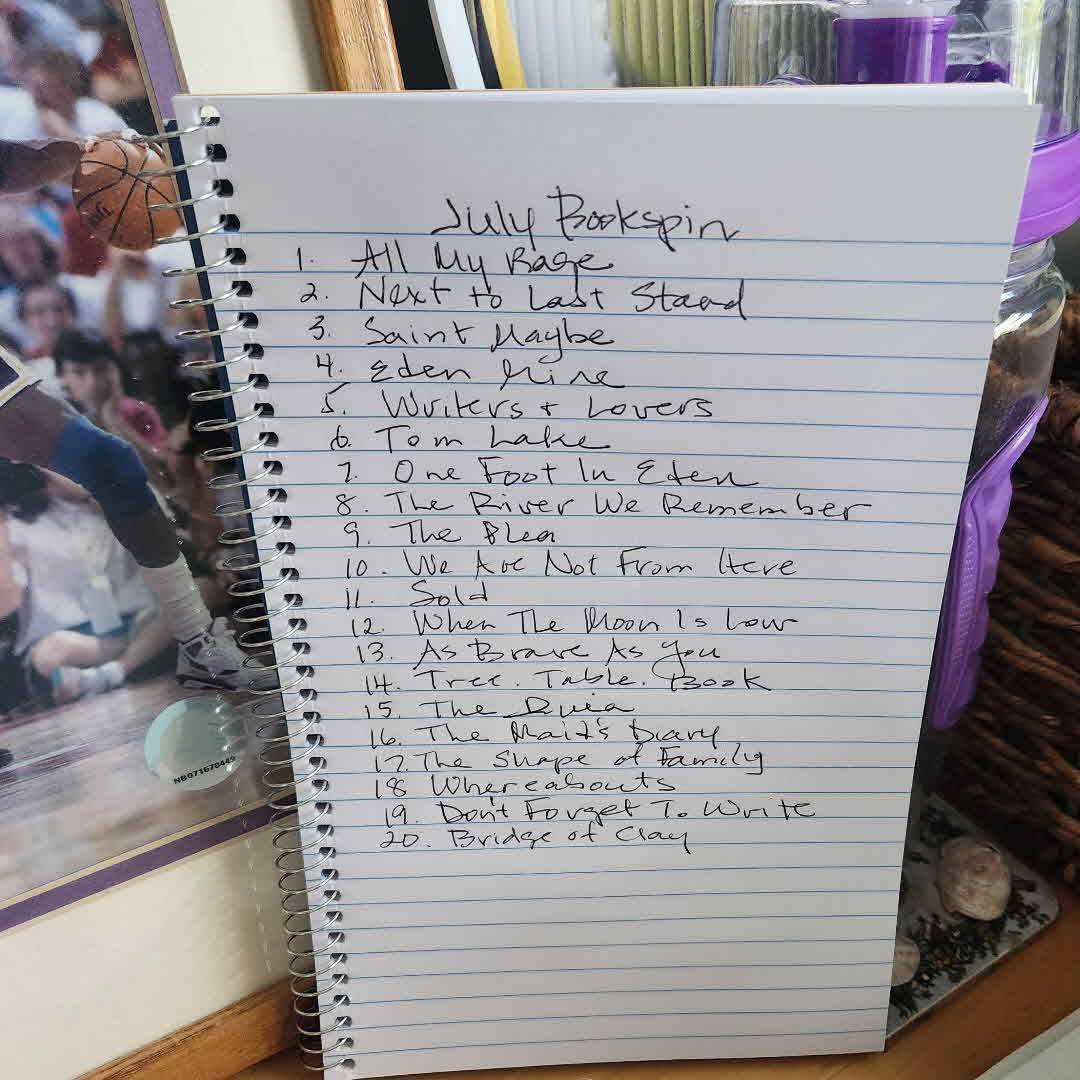 July Bookspin
1. All My Rage
2. Next to Last Stand
3. Saint Maybe
4. Eden Mine
5. Writers + Lovers
6. Tom Lake
7. One Foot In Eden
8. The River We Remember
9. The Plea
10. We Are Not From Here
11. Sold
12. When The Moon Is Low
13. As Brave As You
14. Tree. Table. Book
15. The Diva
16. The Maid's Diary
17. The Shape of Family
18 Whereabouts
19. Don't Forget To Write
20. Bridge of Clay
NB071670449